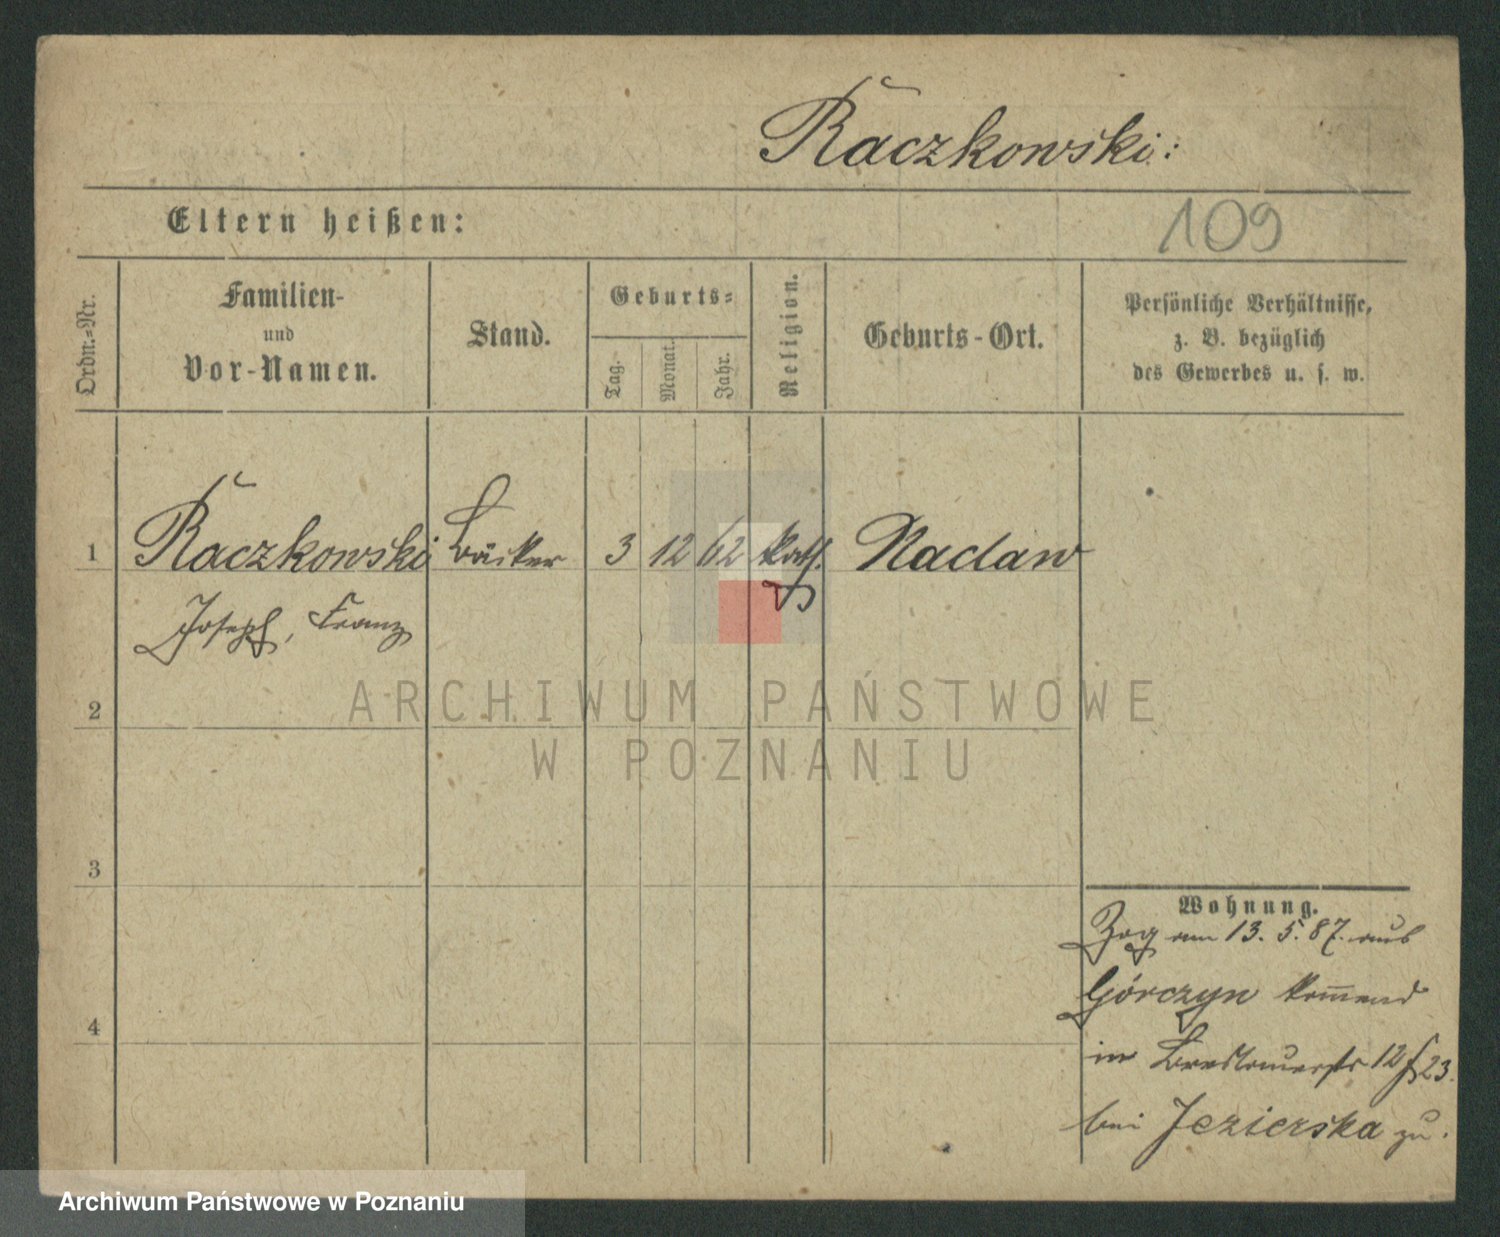 Raczkowski:
Eltern heißen:
109
Ordn.-Nr.
Familien-
und
Vor-Namen.
Stand.
Geburts-
Tag.
Monat.
Jahr.
Religion.
Geburts-Ort.
Persönliche Verhältnisse,
z. B. bezüglich
des Gewerbes u. s. w.
1 Raczkowski Bäcker 3 12 62 kath. Naclaw
Joseph, Franz
2
3
4
Wohnung.
Zog am 13. 5. 87. aus
Górczyn kom̅end
in Breslauerstr 12/23.
bei Jezierska zu.
ARCHIWUM PAŃSTWOWE
W POZNANIU
Archiwum Państwowe w Poznaniu